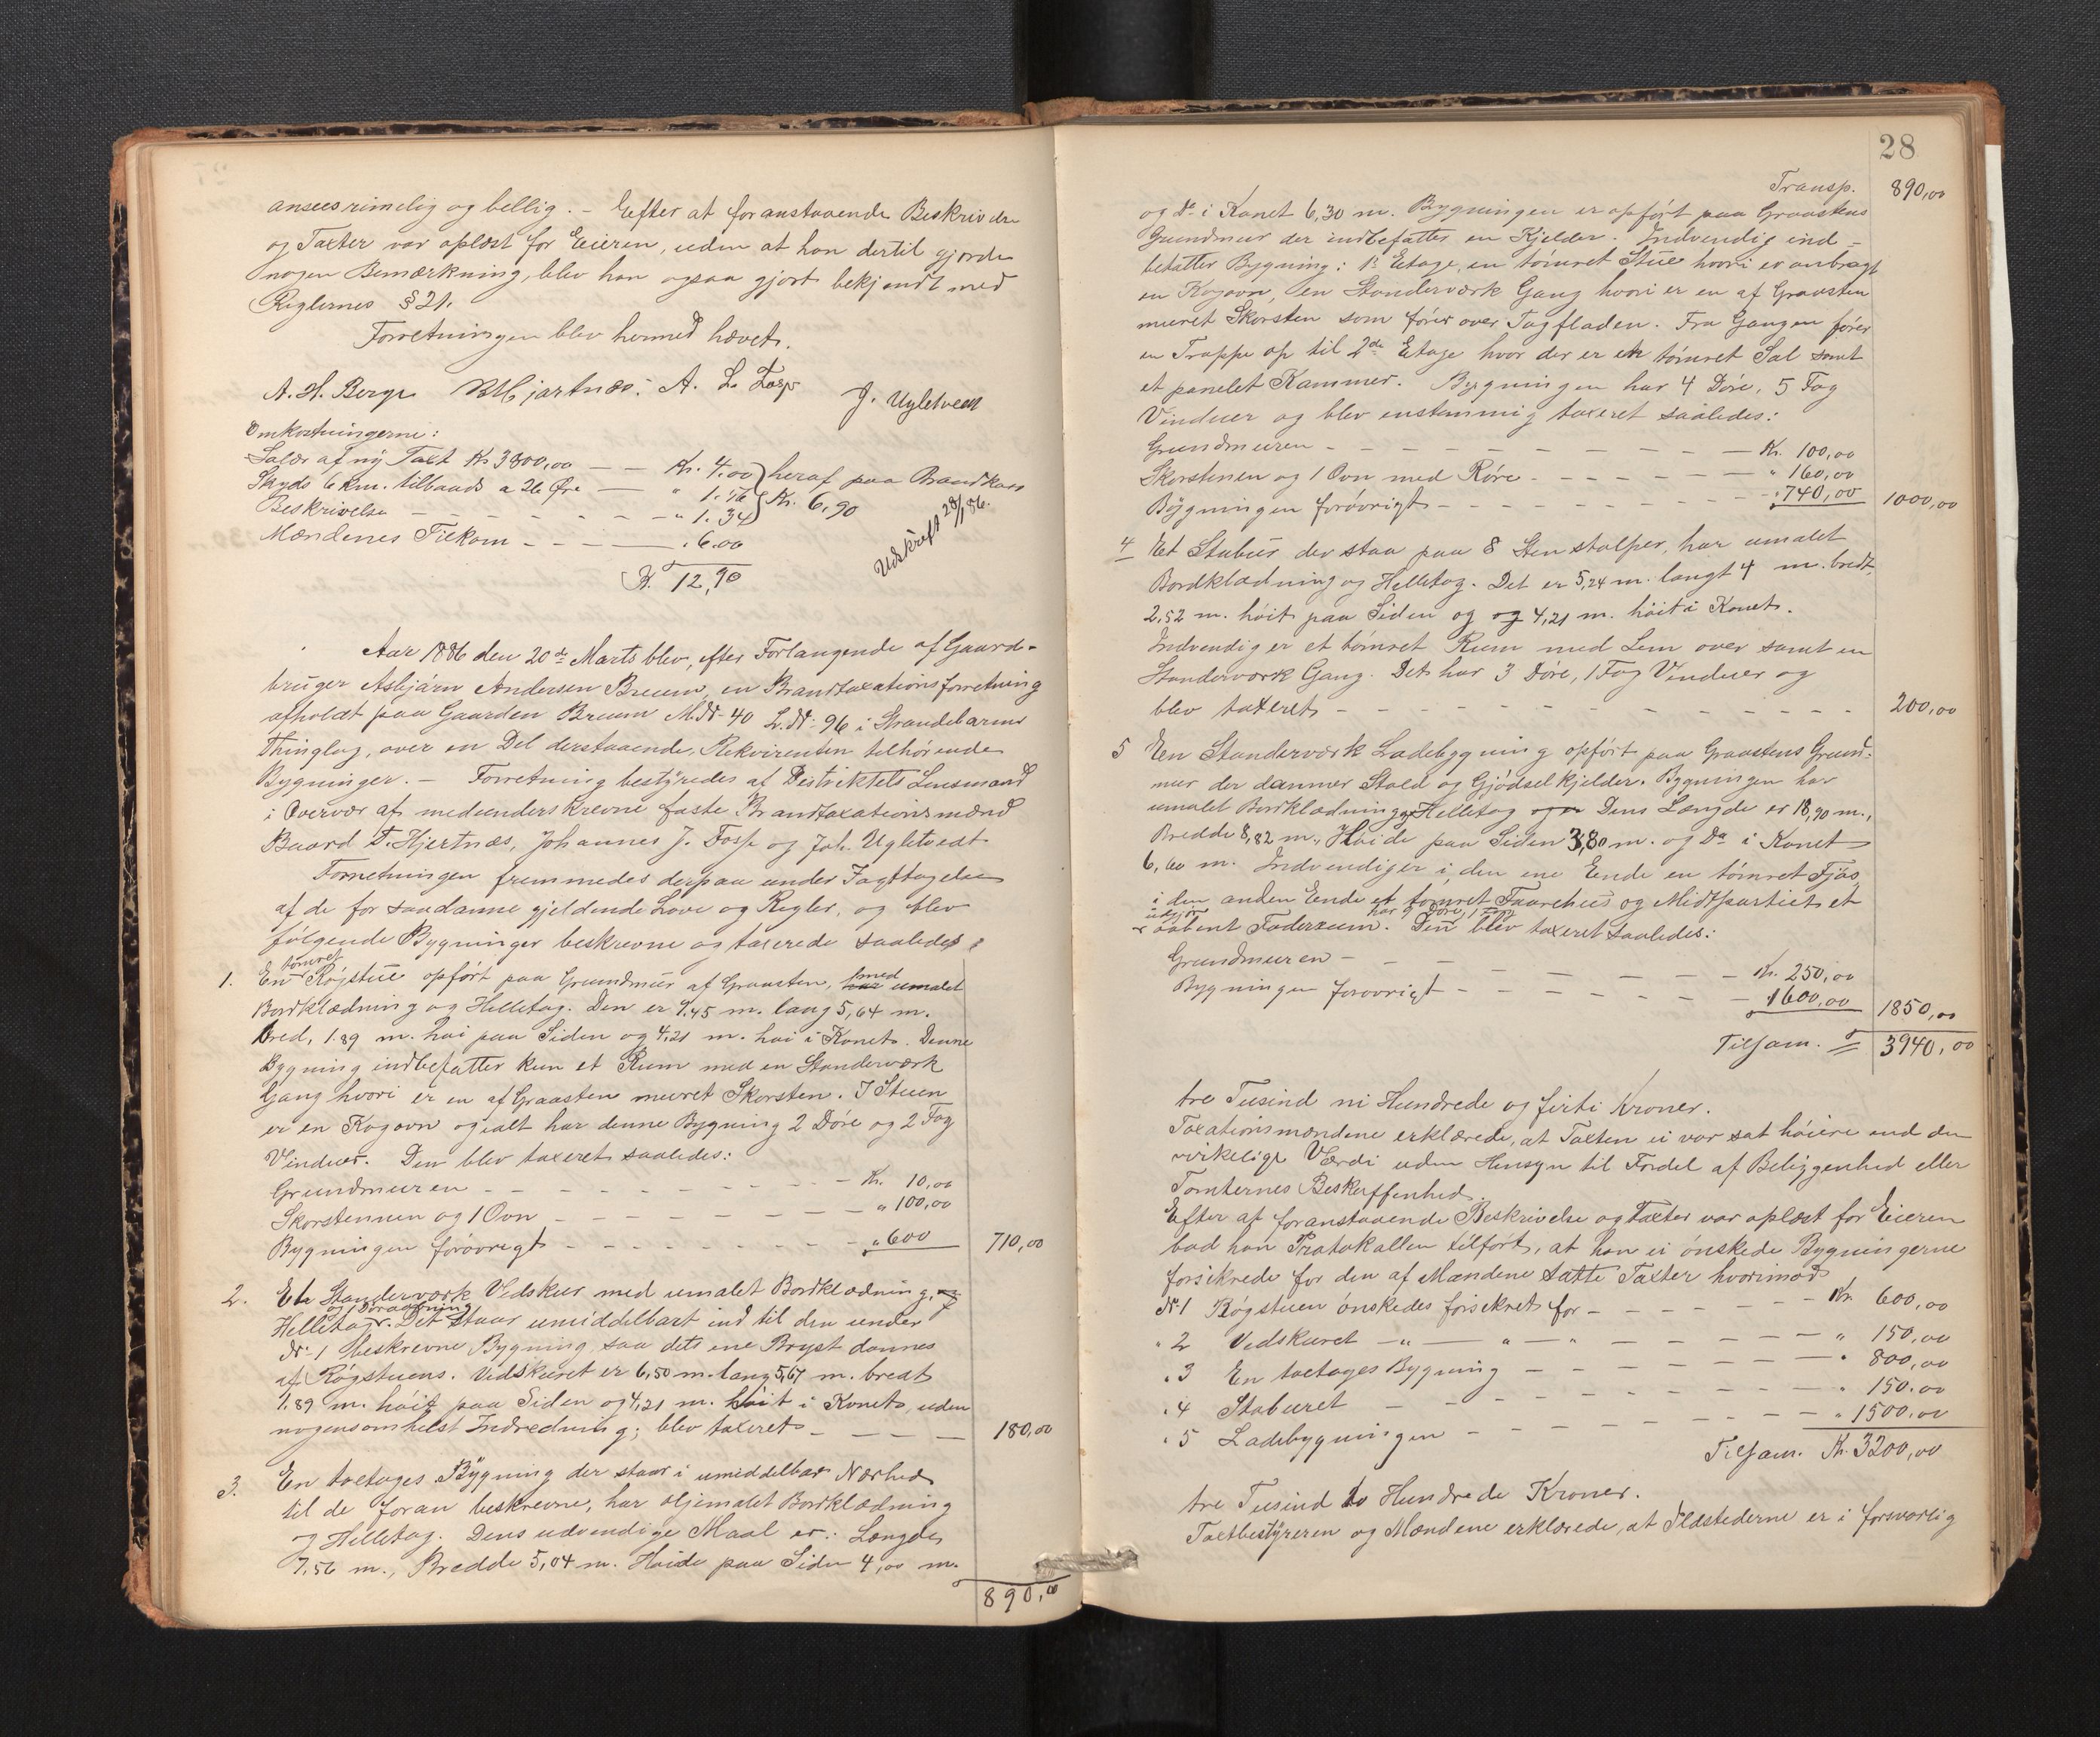 ansees rimelig og bellig. – Efter at foranstaaende Beskrivelse
og Taxter var oplæst for Eieren, uden at han dertil gjorde
nogen Bemærkning, blev han ogsaa gjort bekjendt med
Reglernes § 21.
Forretningen blev hermed hævet.
A. H. Berge B Hjartnæs. A. L. Fosse J. Ugletveit
Omkostningerne:
Salær af ny Taxt Kr 3800,00 — — Kr. 4.00 } heraf paa Brandkass
Skyds 6 km. tilbaads a 26 Øre — " 1.56 } Kr. 6,90
Beskrivelse – – – – – – – " 1.34
Mændenes Tilkom – – — — " 6.00
Kr. 12,90
Udskrift 28/1 86.
Aar 1886 den 20de Marts blev, efter Forlangende af Gaard-
bruger Asbjørn Andersen Breum, en Brandtaxationsforretning
afholdt paa Gaarden Breum M.Nr 40 L.Nr 96 i Strandebarms
Thinglag, over en Del derstaaende, Rekvirenten tilhørende
Bygninger. – Forretning bestyredes af Distriktets Lensmand
i Overvær af medunderskrevne faste Brandtaxationsmænd
Baard T. Hjertnæs, Johannes J. Fosse og Joh. Ugletvedt
Forretningen fremmedes derpaa under Iagttagelse
af de for saadanne gjeldende Love og Regler, og blev
følgende Bygninger beskrevne og taxerede saaledes:
1. En tømret Røgstue opført paa Grundmur af Graasten, har med umalet
Bordklædning og Helletag. Den er 9.45 m. lang 5,64 m.
bred, 1.89 m. høi paa Siden og 4,21 m. høi i Kanet. Denne
Bygning indbefatter kun et Rum med en Standerværk
Gang hvori er en af Graasten muret Skorsten. I Stuen
er en Kogovn og ialt har denne Bygning 2 Døre og 2 Fag
Vinduer. Den blev taxeret saaledes:
Grundmuren – – – – – – – – Kr. 10,00
Skorstennen og 1 Ovn – – – – – – " 100,00
Bygningen forøvrigt – – – – – – – " 600 710,00
2. Et Standerværk Vedskur med umalet Bordklædning, og
Helletag og 1 Døraabning. Det staar umiddelbart ind til den under
Nr 1 beskrevne Bygning, saa dets ene Bryst dannes
af Røgstuens. Vedskuret er 6,50 m. lang 5,67 m. bredt
1.89 m. høit paa Siden og 4,21 m. høit i Kanet, uden
nogensomhelst Indredning; blev taxeret – – – — 180,00
3. En toetages Bygning der staar i umiddelbar Nærhed
til de foran beskrevne, har oljemalet Bordklædning
og Helletag. Dens udvendige Maal er: Længde
7,56 m., Bredde 5,04 m. Høide paa Siden 4,00 m.
890,00
28
Transp. 890,00
og do i Kanet 6,30 m. Bygningen er opført paa Graastens
Grundmur der indbefatter en Kjelder. Indvendig ind-
befatter Bygning: 1s Etage, en tømret Stue hvori er anbragt
en Kogovn, en Standerværk Gang hvori er en af Graasten
muret Skorsten som fører over Tagfladen. Fra Gangen fører
en Trappe op til 2de Etage hvor der er en tømret Sal samt
et panelet Kammer. Bygningen har 4 Døre, 5 Fag
Vinduer og blev enstemmig taxeret saaledes:
Grundmuren – – – – – – – – – – – Kr. 100,00
Skorstenen og 1 Ovn med Røre – – – – – – " 160,00
Bygningen forøvrigt – – – – – – – – " 740,00 1000,00
4 Et Stabur der staa paa 8 Stenstolper, har umalet
Bordklædning og Helletag. Det er 5,24 m. langt 4 m. bredt,
2,52 m. høit paa Siden og og 4,21 m. høit i Kanet.
Indvendig er et tømret Rum med Lem over samt en
Standerværk Gang. Det har 3 Døre, 1 Fag Vinduer og
blev taxeret – – – – – – – – – – – – 200,00
5 En Standerværk Ladebygning opført paa Graastens Grund-
mur der danner Stald og Gjødselkjelder. Bygningen har
umalet Bordklædning og Helletag Dens Længde er 18,90 m.,
Bredde 8,82 m., Høide paa Siden 3,80 m. og Do i Kanet
6,60 m. Indvendig er i den ene Ende en tømret Fjøs,
i den anden Ende et tømret Faarehus og Midtpartiet et
udgjør aabent Foderrum. Den har 9 Døre, 1 Fag blev taxeret saaledes:
Grundmuren – – – – – – – – – Kr. 250,00
Bygningen forøvrigt – – – – – – – 1600,00 1850,00
Tilsam. 3940,00
tre Tusind ni Hundrede og firti Kroner.
Taxationsmændene erklærede, at Taxten ei var sat høiere end den
virkelige Værdi uden Hensyn til Fordel af Beliggenhed eller
Tomternes Beskaffenhed.
Efter at foranstaaende Beskrivelse og Taxter var oplæst for Eieren
bad han Protokollen tilført, at han ei ønskede Bygningerne
forsikrede for den af Mændene satte Taxter hvorimod
Nr 1 Røgstuen ønskedes forsikret for – – – – – – Kr. 600,00
" 2 Vedskuret —"— " — " – – – – – " 150,00
" 3 En toetages Bygning – – – – – – – " 800,00
" 4 Staburet – – – – – – – – – – " 150.00
" 5 Ladebygningen – – – – – – – – " 1500,00
Tilsam. Kr. 3200,00
tre Tusind to Hundrede Kroner.
Taxtbestyreren og Mændene erklærede, at Ildstederne er i forsvarlig